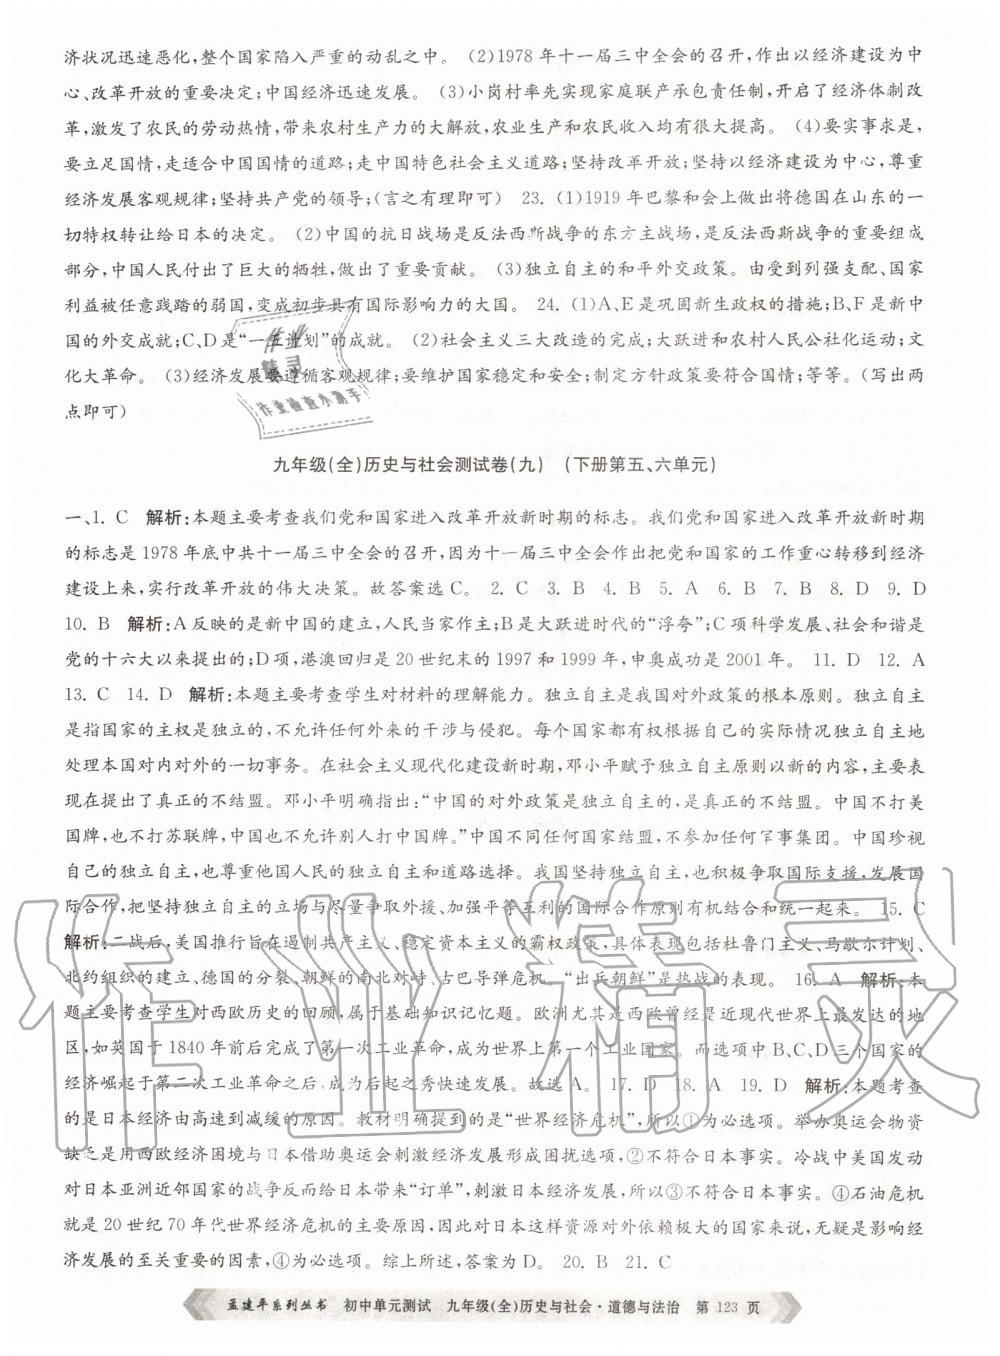 济状况迅速恶化,整个国家陷入严重的动乱之中。 (2)1978 年十一届三中全会的召开,作出以经济建设为中
心、改革开放的重要决定;中国经济迅速发展。 (3)小岗村率先实现家庭联产承包责任制,开启了经济体制改
革,激发了农民的劳动热情,带来农村生产力的大解放,农业生产和农民收入均有很大提高。 (4)要实事求是,
要立足国情,走适合中国国情的道路;走中国特色社会主义道路;坚持改革开放;坚持以经济建设为中心,尊重
经济发展客观规律;坚持共产党的领导;(言之有理即可) 23. (1)1919 年巴黎和会上做出将德国在山东的一
切特权转让给日本的决定。 (2)中国的抗日战场是反法西斯战争的东方主战场,是反法西斯战争的重要组成
部分,中国人民付出了巨大的牺牲,做出了重要贡献。 (3)独立自主的和平外交政策。由受到列强支配、国家
利益被任意践踏的弱国,变成初步具有国际影响力的大国。 24. (1)A、E是巩固新生政权的措施;B、F是新中
国的外交成就;C、D是“一五计划”的成就。 (2)社会主义三大改造的完成;大跃进和农村人民公社化运动;文
化大革命。 (3)经济发展要遵循客观规律;要维护国家稳定和安全;制定方针政策要符合国情;等等。(写出两
点即可)
作业
精灵
作业检查小助手
九年级(全)历史与社会测试卷(九) (下册第五、六单元)
一、1. C 解析:本题主要考查我们党和国家进入改革开放新时期的标志。我们党和国家进入改革开放新时期
的标志是 1978 年底中共十一届三中全会的召开,因为十一届三中全会作出把党和国家的工作重心转移到经济
建设上来,实行改革开放的伟大决策。故答案选C。 2. C 3. B 4. B 5. A 6. B 7. B 8. D 9. D
10. B 解析:A反映的是新中国的建立,人民当家作主;B是大跃进时代的“浮夸”;C项科学发展、社会和谐是
党的十六大以来提出的;D项,港澳回归是 20 世纪末的 1997 和 1999 年,申奥成功是 2001 年。 11. D 12. A
13. C 14. D 解析:本题主要考查学生对材料的理解能力。独立自主是我国对外政策的根本原则。独立自主
是指国家的主权是独立的,不允许任何外来的干涉与侵犯。每个国家都有权根据自己的实际情况独立自主地
处理本国对内对外的一切事务。在社会主义现代化建设新时期,邓小平赋予独立自主原则以新的内容,主要表
现在提出了真正的不结盟。邓小平明确指出:“中国的对外政策是独立自主的,是真正的不结盟。中国不打美
国牌,也不打苏联牌,中国也不允许别人打中国牌。”中国不同任何国家结盟,不参加任何军事集团。中国珍视
自己的独立自主,也尊重他国人民的独立自主和道路选择。我国坚持独立自主,也积极争取国际支援,发展国
际合作,把坚持独立自主的立场与尽量争取外援、加强平等互利的国际合作原则有机结合和统一起来。 15. C
解析:二战后,美国推行旨在遏制共产主义、稳定资本主义的霸权政策,具体表现包括杜鲁门主义、马歇尔计划、
北约组织的建立、德国的分裂、朝鲜的南北对峙、古巴导弹危机。“出兵朝鲜”是热战的表现。 16. A 解析:本
题主要考查学生对西欧历史的回顾,属于基础知识记忆题。欧洲尤其是西欧曾经是近现代世界上最发达的地
区,如英国于 1840 年前后完成了第一次工业革命,成为世界上第一个工业国家。而选项中B、C、D三个国家的
经济崛起于第二次工业革命之后,成为后起之秀快速发展。故选A。 17. D 18. A 19. D 解析:本题考查
的是日本经济由高速到减缓的原因。教材明确提到的是“世界经济危机”,所以①为必选项。举办奥运会物资
缺乏是用西欧经济困境与日本借助奥运会刺激经济发展形成困扰选项,②不符合日本事实。冷战中美国发动
对日本亚洲近邻国家的战争反而给日本带来“订单”,刺激日本经济发展,所以③不符合日本事实。④石油危机
就是 20 世纪 70 年代世界经济危机的主要原因,因此对日本这样资源对外依赖极大的国家来说,无疑是影响经
济发展的至关重要的因素,④为必选项。综上所述,答案为D。 20. B 21. C
作业精灵
孟建平系列丛书 初中单元测试 九年级(全)历史与社会·道德与法治 第 123 页